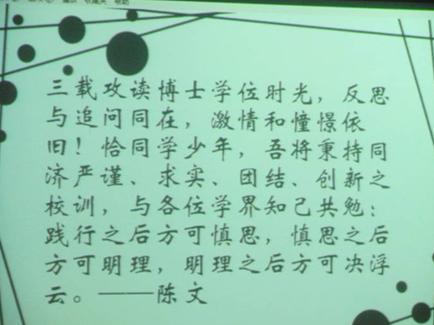 三载攻读博士学位时光，反思
与追问同在，激情和憧憬依
旧！恰同学少年，吾将秉持同
济严谨、求实、团结、创新之
校训，与各位学界知己共勉：
践行之后方可慎思，慎思之后
方可明理，明理之后方可决浮
云。——陈文